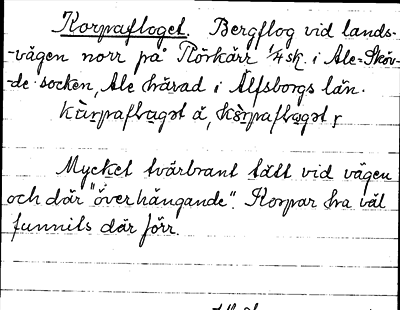 Korpafloget. Bergflog vid lands-
-vägen norr på Rörkärr 1/4 sk. i Ale-Sköv-
-de socken, Ale härad i Älfsborgs län.

Mycket tvärbrant tätt vid vägen
och där "överhängande". Korpar ha väl
funnits där förr.